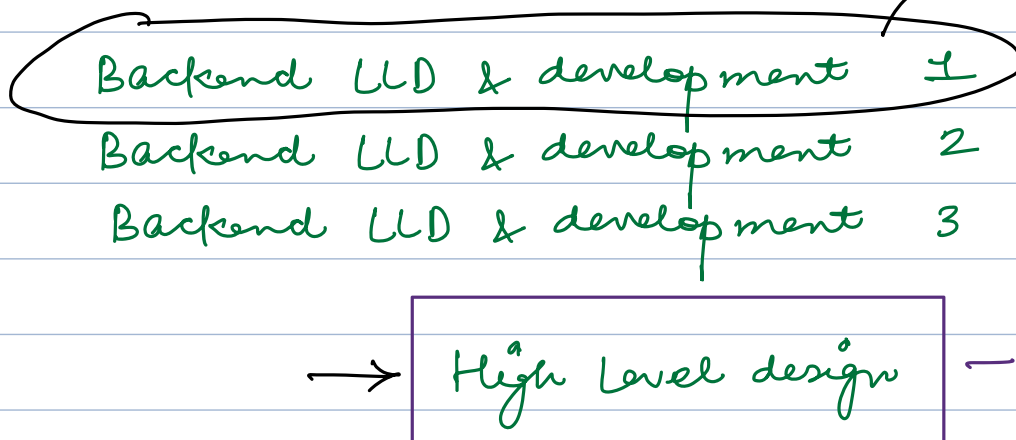 Backend LLD & development 1
Backend LLD & development 2
Backend LLD & development 3
High Level design